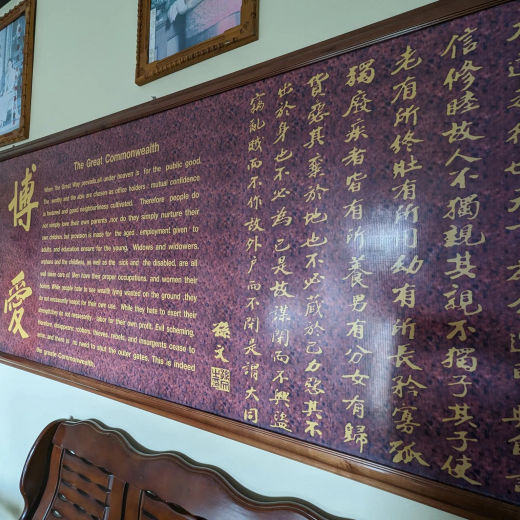 信修睦故人不獨親其親不獨子其子使
老有所終壯有所用幼有所長矜寡孤
獨廢疾者皆有所養男有分女有歸
貨惡其棄於地也不必藏於己力惡其不
出於身也不必為己是故謀閉而不興盜
竊亂賊而不作故外戶而不閉是謂大同
孫文
The Great Commonwealth
When The Great Way prevails,all under heaven is for the public good.
The worthy and the able are chosen as office holders ; mutual confidence
is fostered and good neighbourliness cultivated. Therefore people do
not simply love their own parents ,nor do they simply nurture their
own children, but provision is made for the aged , employment given to
adults, and education ensure for the young. Widows and widowers,
orphans and the childless, as well as the sick and the disabled, are all
well taken care of. Men have their proper occupations, and women their
homes. While people hate to see wealth lying wasted on the ground ,they
do not necessarily hoard for their own use. While they hate to exert their
strength,they do not necessarily labor for their own profit. Evil scheming,
therefore, disappears; robbers, thieves, rebels, and insurgents cease to
exist, and there is no need to shut the outer gates. This is indeed
the greate Commonwealth.
博愛